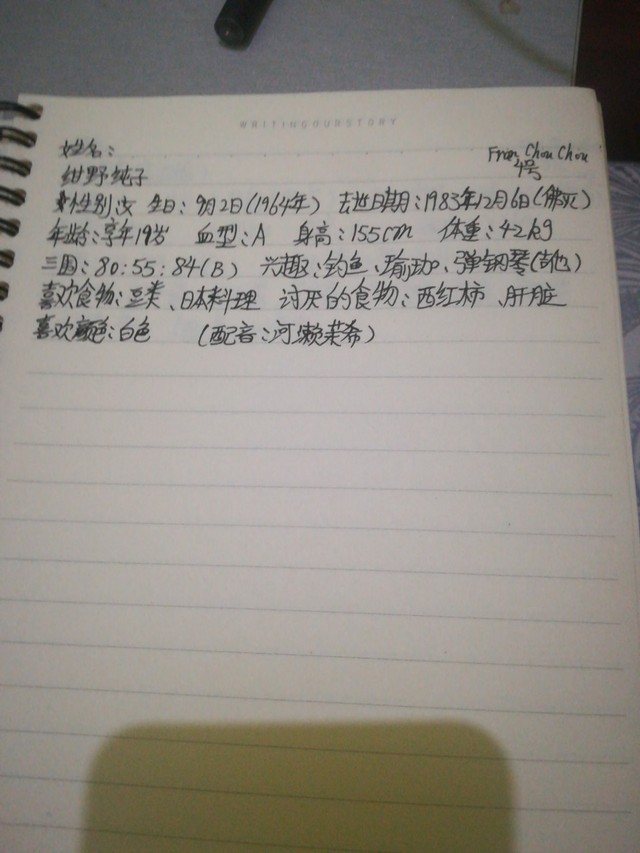 WRITINGOURSTORY
姓名： Fran Chou Chou
绀野纯子 4号
性别：女 生日：9月2日(1964年) 去世日期：1983年12月6日(解死)
年龄：享年19岁 血型：A 身高：155cm 体重：42kg
三围：80：55：84(B) 兴趣：钓鱼、瑜珈、弹钢琴(吉他)
喜欢食物：豆类、日本料理 讨厌的食物：西红柿、肝脏
喜欢颜色：白色 (配音：河濑茉希)